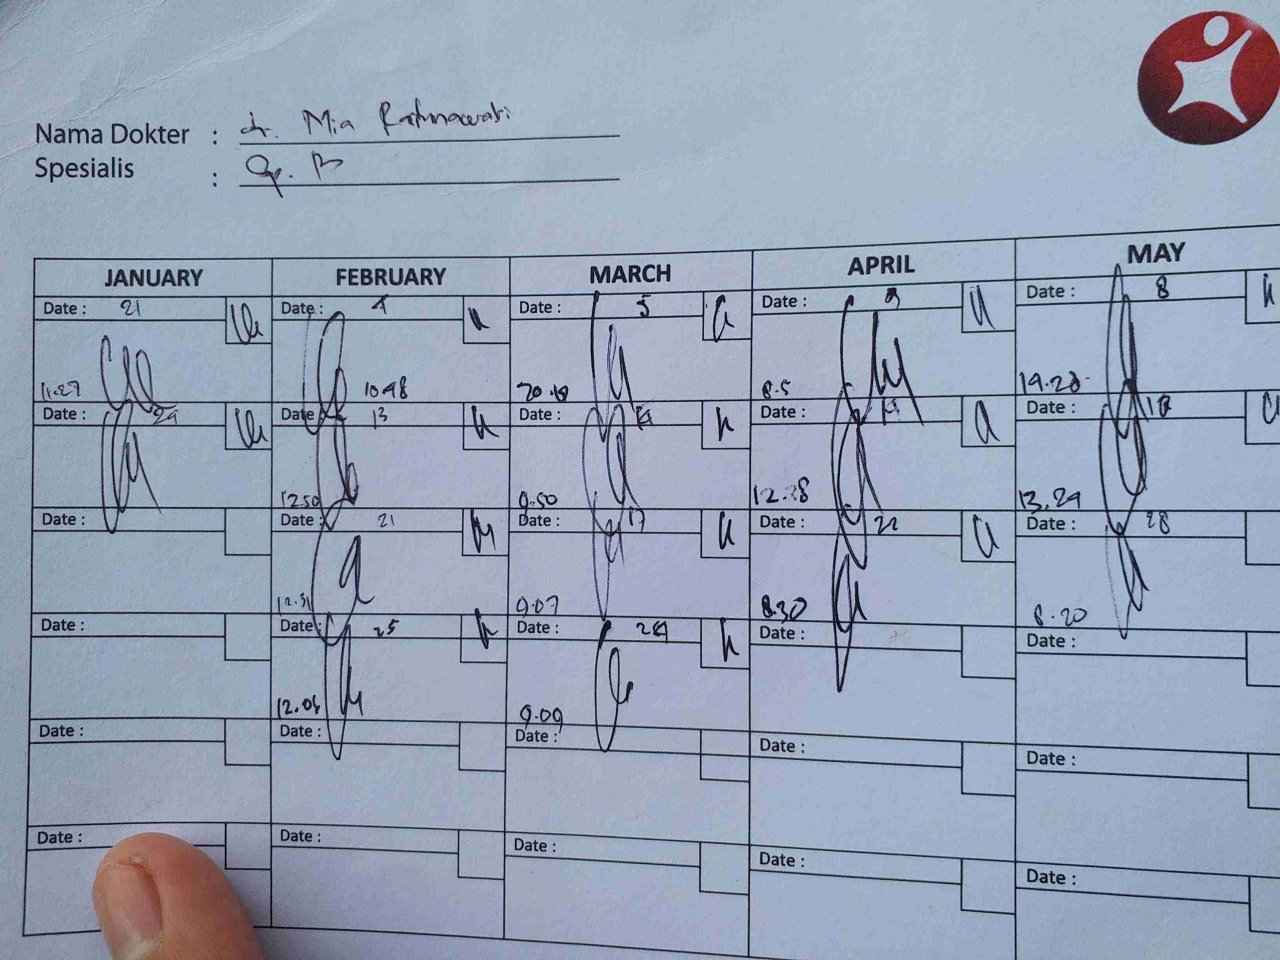 Nama Dokter : dr. Mia Ratnawati
Spesialis : Sp. B
JANUARY FEBRUARY MARCH APRIL MAY
Date : 21 Date : 4 Date : 5 Date : 9 Date : 8
11.27 10.48 20.10 8.5 19.20
Date : 29 Date : 13 Date : Date : 15 Date : 18
12.50 9.50 12.28 13.29
Date : Date : 21 Date : 17 Date : 22 Date : 28
12.31 9.07 8.30 8.20
Date : Date : 25 Date : Date : Date :
12.06 9.09
Date : Date : Date : Date : Date :
Date : Date : Date : Date : Date :